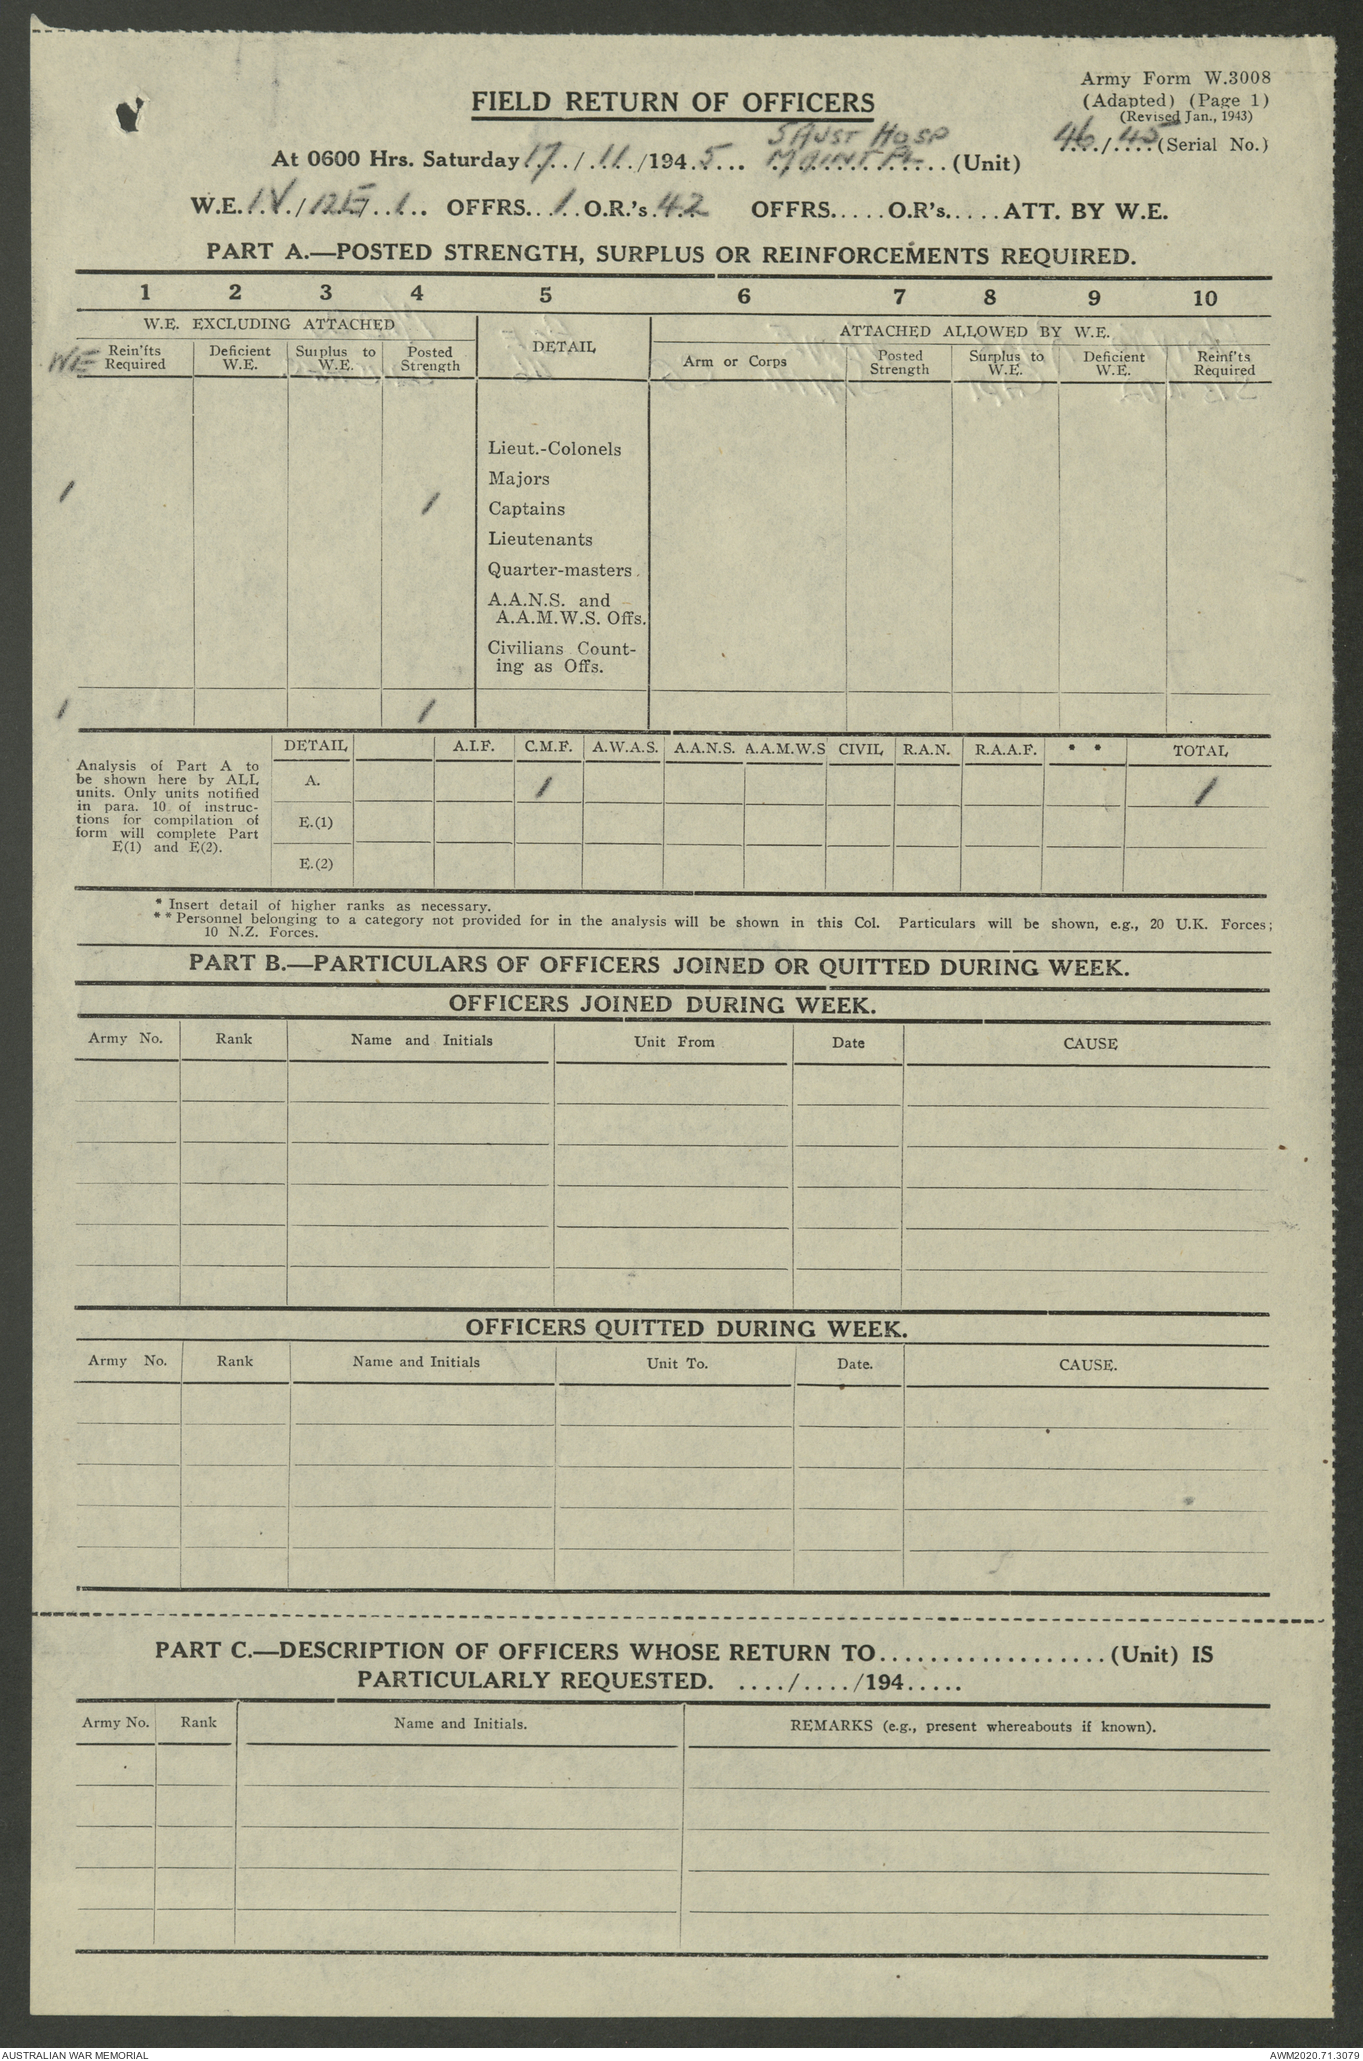 Army Form W.3008
FIELD RETURN OF OFFICERS
(Adapted) (Page 1)
(Revised Jan., 1943)
At 0600 Hrs. Saturday 17../.11../194.5... 5 AUST HOSP MAINT PL (Unit)
46../.45..(Serial No.)
W.E. IV./12E/..1.. OFFRS...1..O.R.'s.42 OFFRS.....O.R's.....ATT. BY W.E.
PART A.—POSTED STRENGTH, SURPLUS OR REINFORCEMENTS REQUIRED.
1 2 3 4 5 6 7 8 9 10
W.E. EXCLUDING ATTACHED DETAIL ATTACHED ALLOWED BY W.E.
WE Rein'fts Required Deficient W.E. Surplus to W.E. Posted Strength Arm or Corps Posted Strength Surplus to W.E. Deficient W.E. Reinf'ts Required
Lieut.-Colonels
Majors
1 1 Captains
Lieutenants
Quarter-masters.
A.A.N.S. and
A.A.M.W.S. Offs.
Civilians Count-
ing as Offs.
1 1
DETAIL A.I.F. C.M.F. A.W.A.S. A.A.N.S. A.A.M.W.S CIVIL R.A.N. R.A.A.F. * * TOTAL
Analysis of Part A to
be shown here by ALL
units. Only units notified
in para. 10 of instruc-
tions for compilation of
form will complete Part
E(1) and E(2).
A. 1 1
E.(1)
E.(2)
* Insert detail of higher ranks as necessary.
** Personnel belonging to a category not provided for in the analysis will be shown in this Col. Particulars will be shown, e.g., 20 U.K. Forces;
10 N.Z. Forces.
PART B.—PARTICULARS OF OFFICERS JOINED OR QUITTED DURING WEEK.
OFFICERS JOINED DURING WEEK.
Army No. Rank Name and Initials Unit From Date CAUSE
OFFICERS QUITTED DURING WEEK.
Army No. Rank Name and Initials Unit To. Date. CAUSE.
PART C.—DESCRIPTION OF OFFICERS WHOSE RETURN TO..................(Unit) IS
PARTICULARLY REQUESTED. ..../..../194.....
Army No. Rank Name and Initials. REMARKS (e.g., present whereabouts if known).
AUSTRALIAN WAR MEMORIAL AWM2020.71.3079